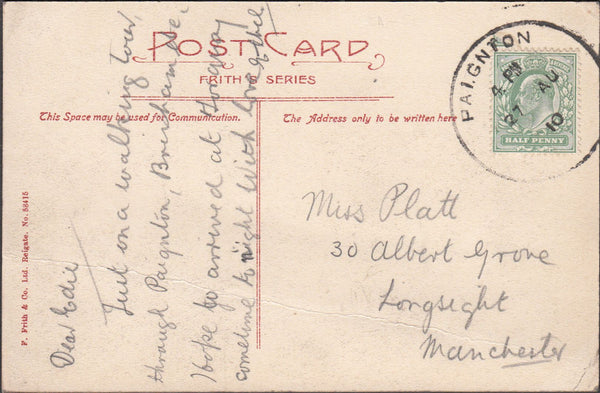 POST CARD
FRITH'S SERIES
This Space may be used for Communication.
The Address only to be written here
PAIGNTON
4. PM
27 AU
10
HALF PENNY
F. Frith & Co. Ltd. Reigate. No. 58415
Dear Edie
Just on a walking tour,
through Paignton, Brixham &c.
I hope to arrived at
sometime to night With love
Miss Platt
30 Albert Grove
Longsight
Manchester